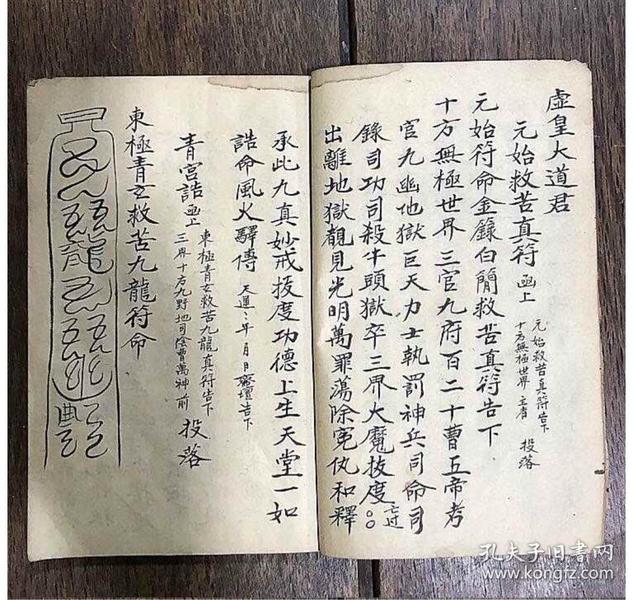 虛皇大道君
元始救苦真符 函上 元始救苦真符告下 十方無極世界 主者 投落
元始符命金籙白簡救苦真符告下
十方無極世界三官九府百二十曹五帝考
官九幽地獄巨天力士執罰神兵司命司
錄司功司殺牛頭獄卒三界大魔拔度○○亡过
出離地獄覩見光明萬罪蕩除冤仇和釋
承此九真妙戒拔度功德上生天堂一如
誥命風火驛傳 天運 年 月 日 齋壇告下
青宮誥 函上 東極青玄救苦九龍真符告下 三界十方九野地司陰曹萬神前 投落
東極青玄救苦九龍符命
孔夫子旧书网
www.kongfz.com